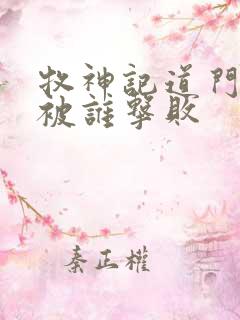 牧神記道門
被誰擊敗
秦正權